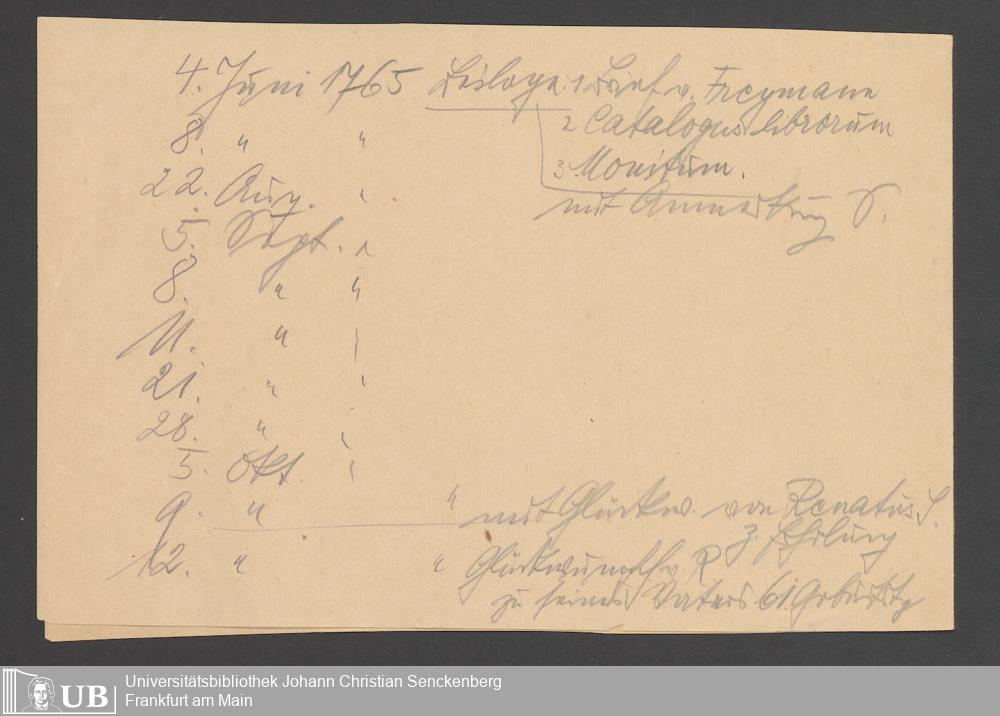 4. Juni 1765 Beilage: 1 Brief v. Freymann
8. " " 2 Catalogus librorum
3 Monitum.
22. Aug. " mit Anmerkung S.
5. Sept. "
8. " "
11. " "
21. " "
28. " "
5. Okt. "
9. " " mit Glückw. von Renatus S.
z.
12. " " Glückwunsch v. R
zu seines Vaters 61. Geburtstg
UB
Universitätsbibliothek Johann Christian Senckenberg
Frankfurt am Main